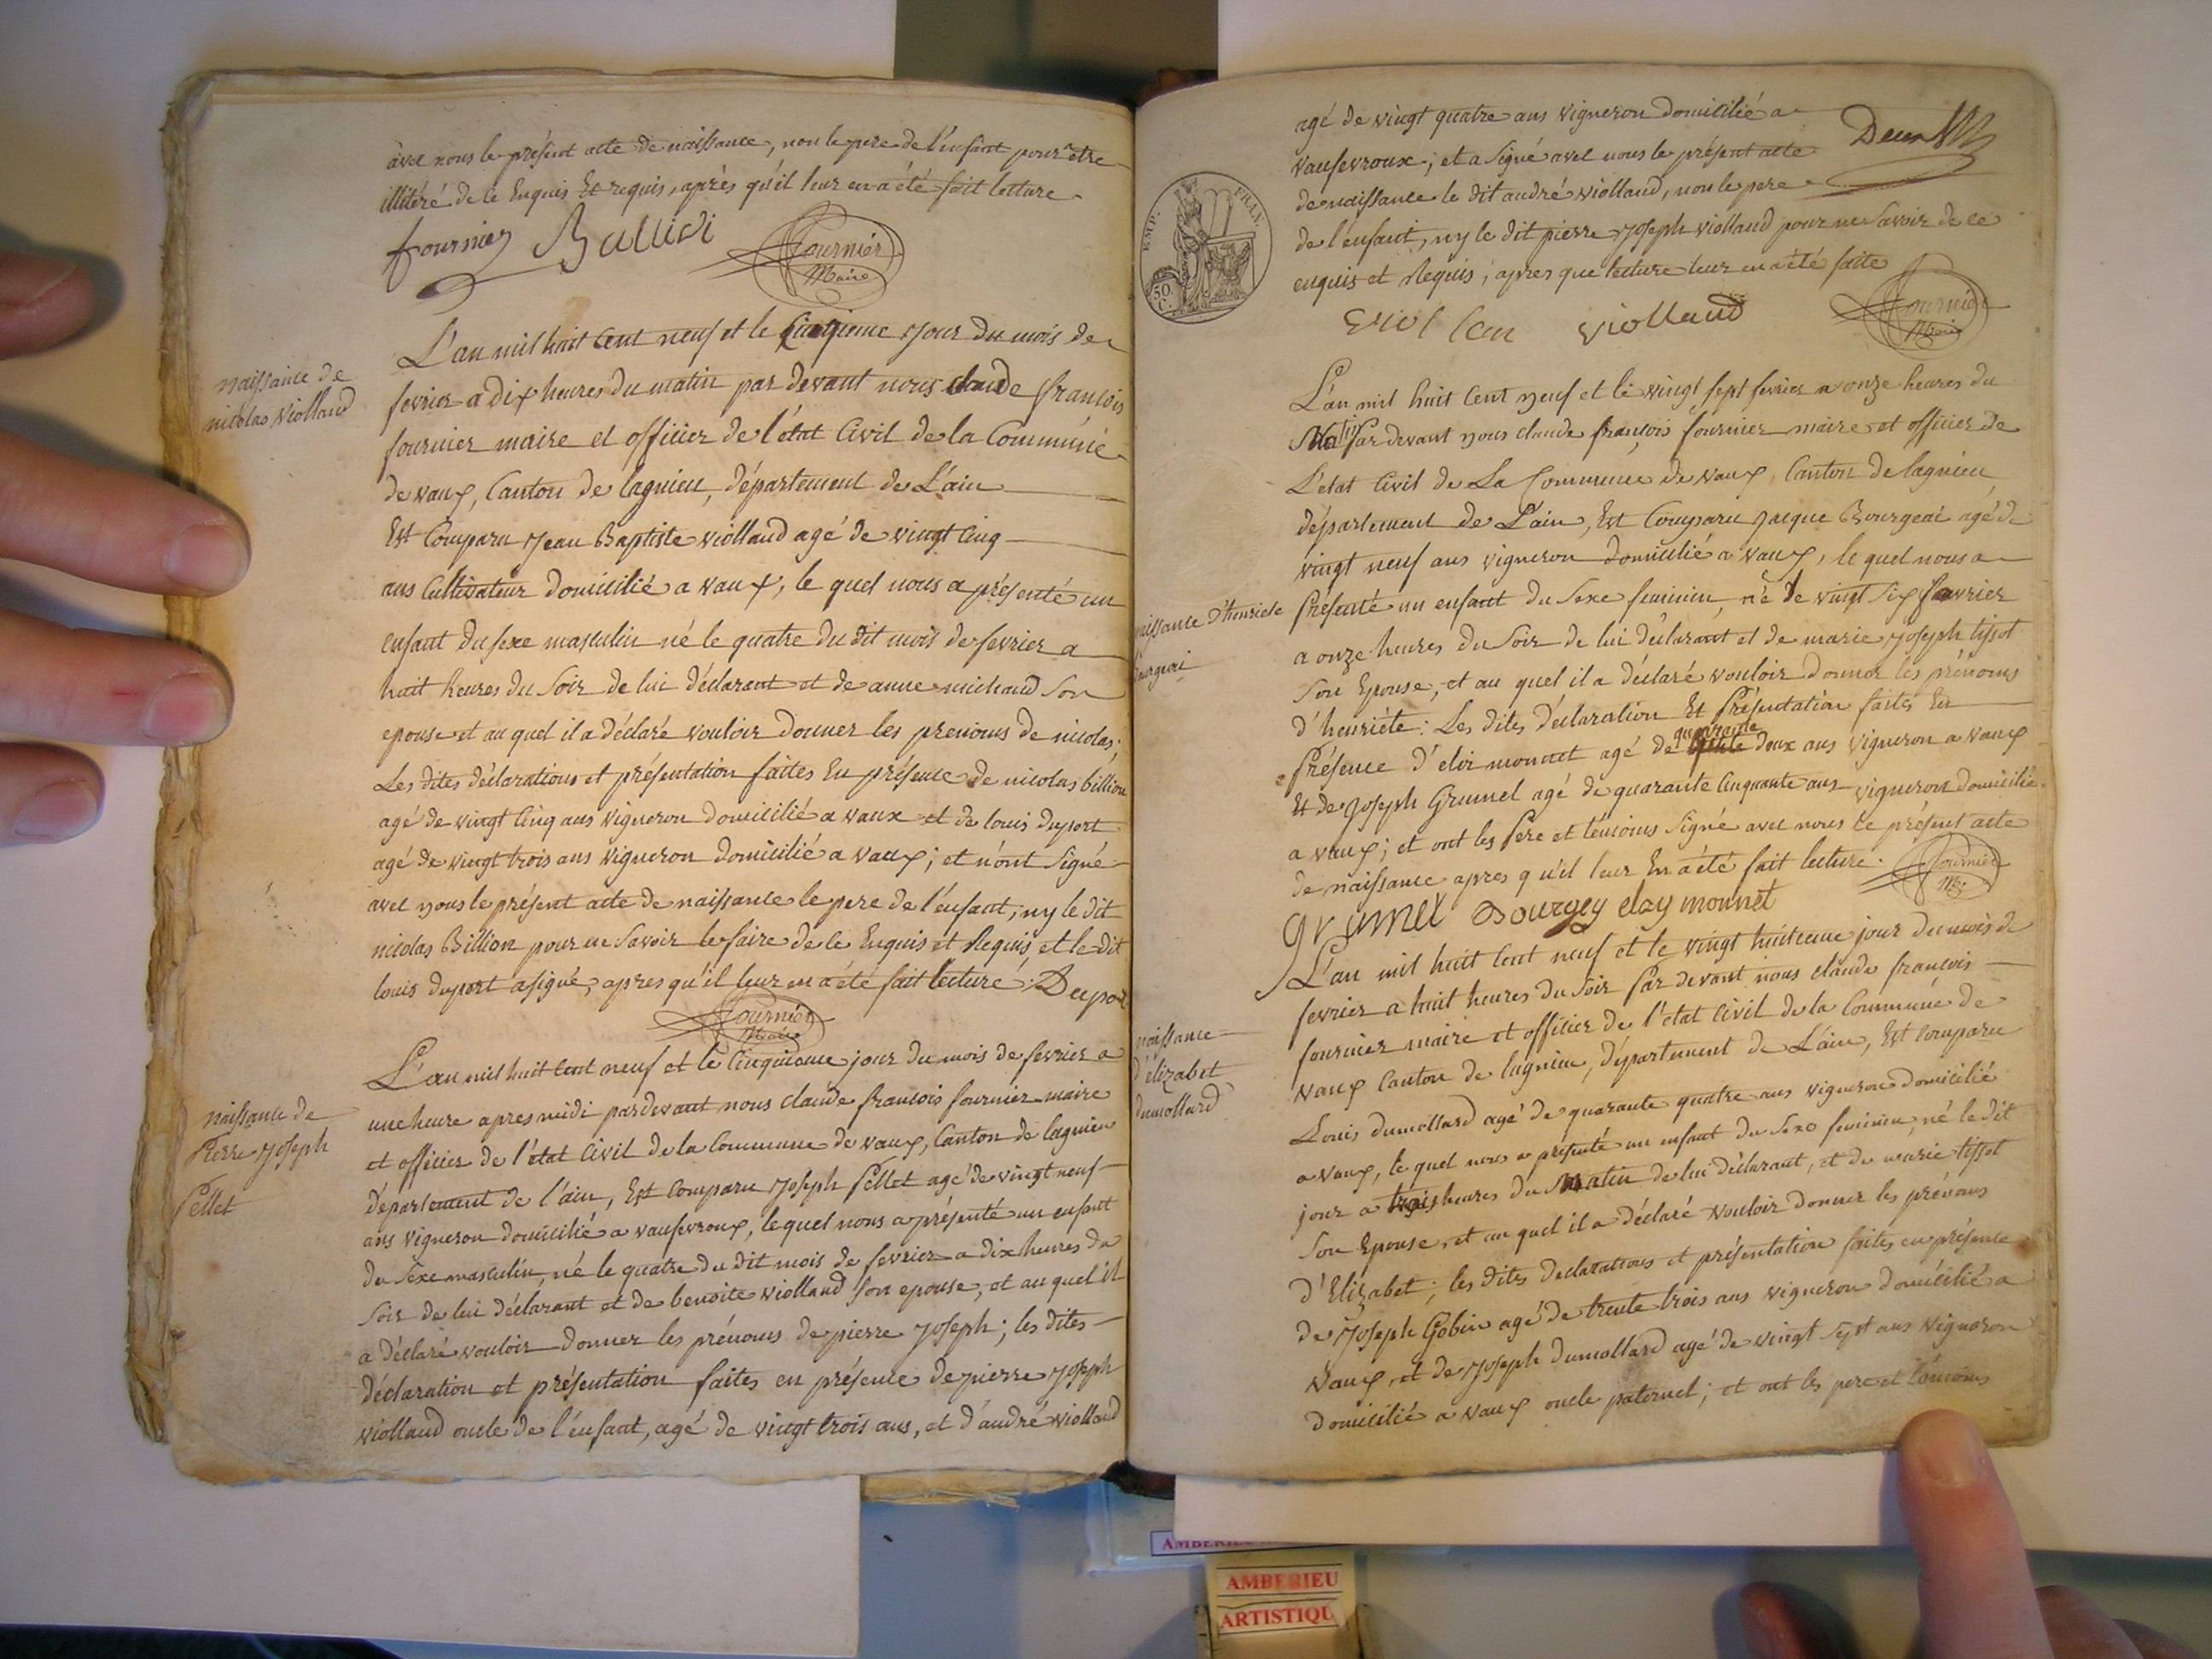 avec nous le présent acte de naissance, non le pere de l'enfant pour etre
illitéré de ce Enquis Et requis, après qu'il leur en a été fait lecture.
fournier Fournier
Maire
naissance de
nicolas Violland
L'an mil huit Cent neuf et le Cinqieme jour du mois de
fevrier a dix heures du matin par devant nous claude francois
fournier maire et officier de l'état Civil de la Commune
de vaux, Canton de lagnieu, département de L'ain
Est Comparu Jean Baptiste violland agé de vingt Cinq
ans Cultivateur Domicilié a vaux, le quel nous a présenté un
enfant du sexe masculin né le quatre du dit mois de fevrier a
huit heures du soir de lui déclarant et de anne michaud son
epouse et au quel il a déclaré vouloir donner les prenoms de nicolas.
Les dites déclarations et présentation faites En présence de nicolas billion
agé de vingt Cinq ans vigneron domicilié a vaux et de louis duport
agé de vingt trois ans vigneron domicilié a vaux; et n'ont signé
avec nous le présent acte de naissance le pere de l'enfant, ny le dit
nicolas Billion pour ne savoir le faire de ce Enquis et Requis, et le dit
louis duport a signé, apres qu'il leur en a été fait lecture. Dupor
Fournier
Maire
naissance de
Pierre Joseph
Pellet
L'an mil huit Cent neuf et le Cinquieme jour du mois de fevrier a
une heure apres midi pardevant nous Claude francois fournier maire
et officier de l'état Civil de la Commune de vaux, Canton de lagnieu
département de l'ain, Est Comparu Joseph Pellet agé de vingt neuf
ans vigneron domicilié a vaufevroux, lequel nous a présenté un enfant
du sexe masculin, né le quatre du dit mois de fevrier a dix heures du
soir de lui déclarant et de benoite violland son epouse, et au quel il
a déclaré vouloir donner les prénoms de pierre Joseph; les dites
déclaration et présentation faites en présence de pierre Joseph
violland oncle de l'enfant, agé de vingt trois ans, et d'andré violland
agé de vingt quatre ans vigneron domicilié a
vaufevroux; et a signé avec nous le présent acte
de naissance le dit andré violland, non le pere
de l'enfant, ny le dit pierre Joseph violland pour ne savoir de ce
enquis et Requis, apres que lecture leur en a été faite
EMP. FRAN.
50
C.
violland Fournier
Maire
L'an mil huit Cent neuf et le vingt sept fevrier a onze heures du
Matin Par devant nous claude francois fournier maire et officier de
L'etat Civil de La Commune de vaux, Canton de lagnieu
département de L'ain, Est Comparu Jacque Bourgeai agé de
vingt neuf ans vigneron domicilié a vaux, le quel nous a
naissance d'henriete
Bourgeai
Présenté un enfant du sexe feminin, né le vingt six favrier
a onze heures du soir de lui déclarant et de marie Joseph tissot
son Epouse, et au quel il a déclaré vouloir donner les prénoms
d'henriéte: Les dites déclaration Et Présentation faites En
Présence d'eloi monnet agé de quarante deux ans vigneron a vaux
Et de Joseph Grumel agé de quarante Cinquante ans vigneron domicilié
a vaux; et ont les Pere et témoins signé avec nous le présent acte
de naissance apres qu'il leur En a été fait lecture. Fournier
grumel Bourgey eloy monnet
naissance
d'élizabet
dumollard
L'an mil huit Cent neuf et le vingt huitieme jour du mois de
fevrier a huit heures du soir Par devant nous claude francois
fournier maire et officier de l'etat Civil de la Commune de
vaux Canton de lagnieu, département de L'ain, Est Comparu
Louis dumollard agé de quarante quatre ans vigneron domicilié
a vaux, le quel nous a présenté un enfant du sexe feminin, né le dit
jour a trois heures du Matin de lui déclarant, et de marie tissot
son Epouse, et au quel il a déclaré vouloir donner les prénoms
d'Elizabet; les dites declarations et présentation faites en présence
de Joseph Gobin agé de trente trois ans vigneron domicilié a
vaux, et de Joseph dumollard agé de vingt sept ans vigneron
domicilié a vaux oncle paternel; et ont les pere et témoins
AMBERIEU
ARTISTIQU